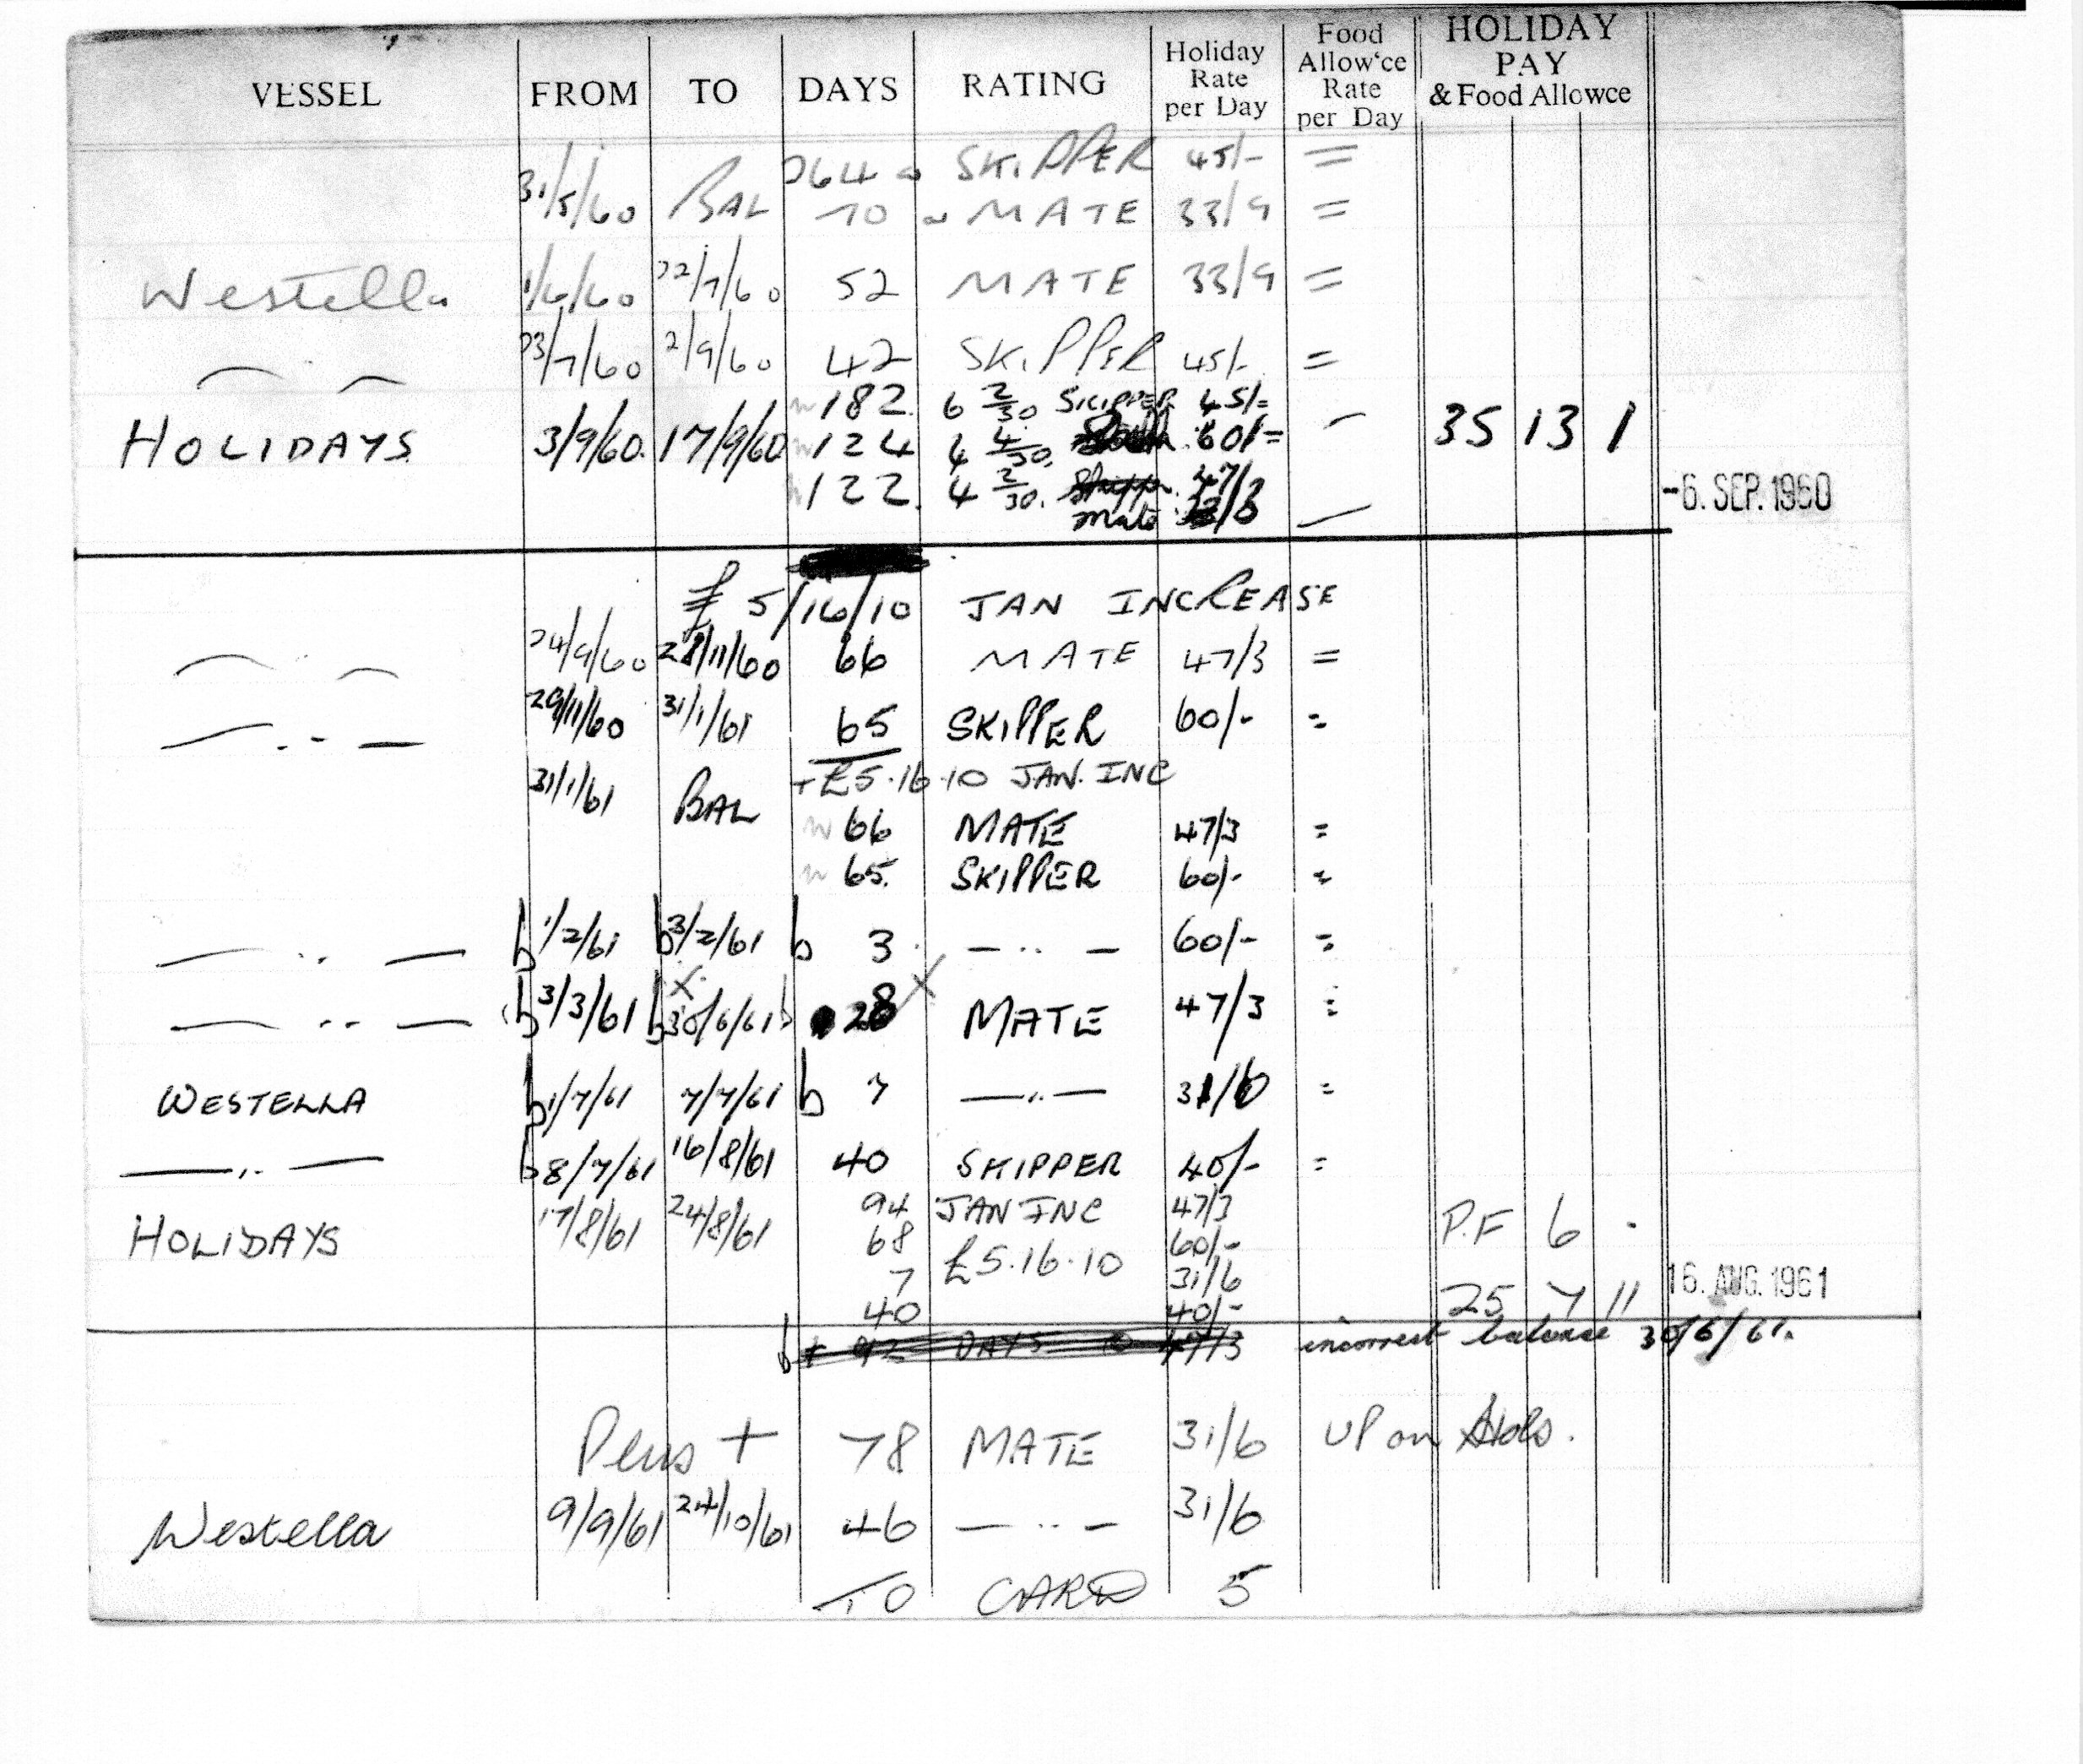 VESSEL FROM TO DAYS RATING Holiday Rate per Day Food Allow'ce Rate per Day HOLIDAY PAY & Food Allowce
264 @ SKIPPER 45/- =
31/5/60 BAL 70 @ MATE 33/9 =
Westella 1/6/60 22/7/60 52 MATE 33/9 =
23/7/60 2/9/60 42 SKIPPER 45/- =
182 6 2/30 SKIPPER 45/=
HOLIDAYS 3/9/60 17/9/60 124 4 4/30 60/= 35 13 1
122 4 2/30 47/3
Mate
-6. SEP. 1960
£ 5/16/10 JAN INCREASE
24/9/60 28/11/60 66 MATE 47/3 =
29/11/60 31/1/61 65 SKIPPER 60/- =
+ £5.16.10 JAN. INC
31/1/61 BAL
66 MATE 47/3 =
65 SKIPPER 60/- =
1/2/61 3/2/61 3 — .. — 60/- =
3/3/61 30/6/61 28 MATE 47/3 =
WESTELLA 1/7/61 7/7/61 7 — .. — 31/6 =
— .. — 8/7/61 16/8/61 40 SKIPPER 40/- =
94 JAN INC 47/3
HOLIDAYS 17/8/61 24/8/61 68 60/- P.F 6 .
7 £5.16.10 31/6
40 40/- 25 7 11 16. AUG. 1961
+ 92 DAYS @ 47/3 incorrect balance 30/6/61.
Plus + 78 MATE 31/6 UP on Hols.
Westella 9/9/61 24/10/61 46 — .. — 31/6
TO CARD 5